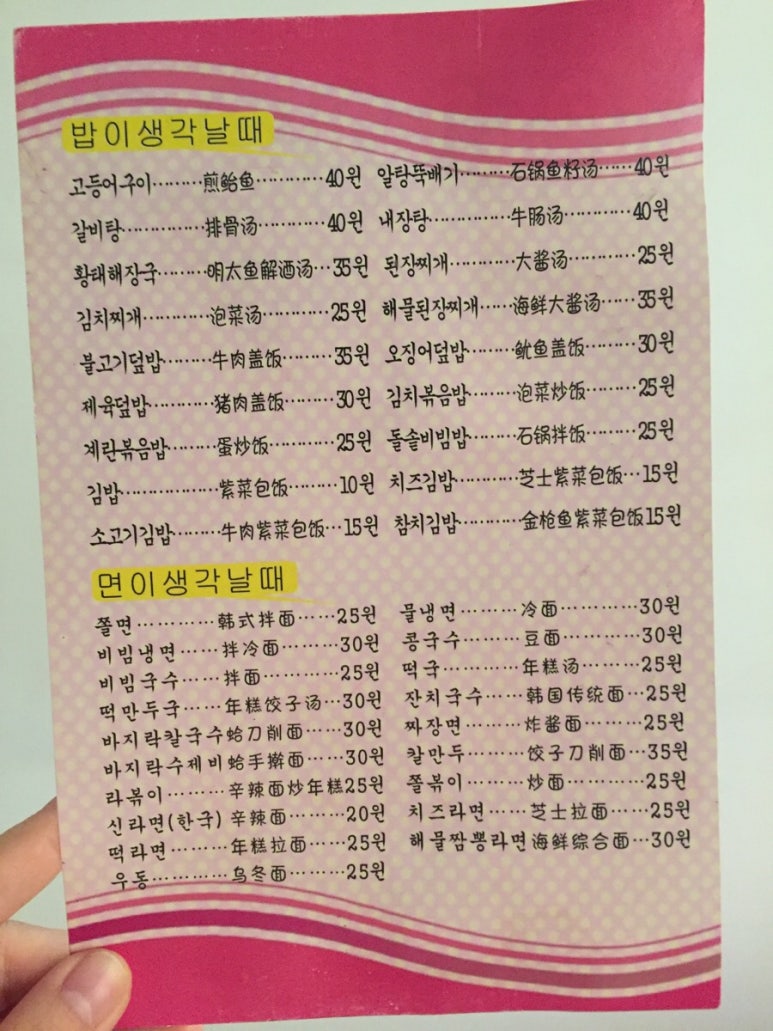 밥이생각날때
고등어구이………煎鲐鱼…………40원 알탕뚝배기………石锅鱼籽汤……40원
갈비탕……………排骨汤…………40원 내장탕……………牛肠汤…………40원
황태해장국………明太鱼解酒汤…35원 된장찌개…………大酱汤…………25원
김치찌개…………泡菜汤…………25원 해물된장찌개……海鲜大酱汤……35원
불고기덮밥………牛肉盖饭………35원 오징어덮밥………鱿鱼盖饭………30원
제육덮밥…………猪肉盖饭………30원 김치볶음밥………泡菜炒饭………25원
계란볶음밥………蛋炒饭…………25원 돌솥비빔밥………石锅拌饭………25원
김밥………………紫菜包饭………10원 치즈김밥…………芝士紫菜包饭…15원
소고기김밥………牛肉紫菜包饭…15원 참치김밥…………金枪鱼紫菜包饭15원
면이생각날때
쫄면…………韩式拌面……25원 물냉면………冷面…………30원
비빔냉면……拌冷面………30원 콩국수………豆面…………30원
비빔국수……拌面…………25원 떡국…………年糕汤………25원
떡만두국……年糕饺子汤…30원 잔치국수……韩国传统面…25원
바지락칼국수蛤刀削面……30원 짜장면………炸酱面………25원
바지락수제비蛤手擀面……30원 칼만두………饺子刀削面…35원
라볶이………辛辣面炒年糕25원 쫄볶이………炒面…………25원
신라면(한국)辛辣面………20원 치즈라면……芝士拉面……25원
떡라면………年糕拉面……25원 해물짬뽕라면海鲜综合面…30원
우동…………乌冬面………25원